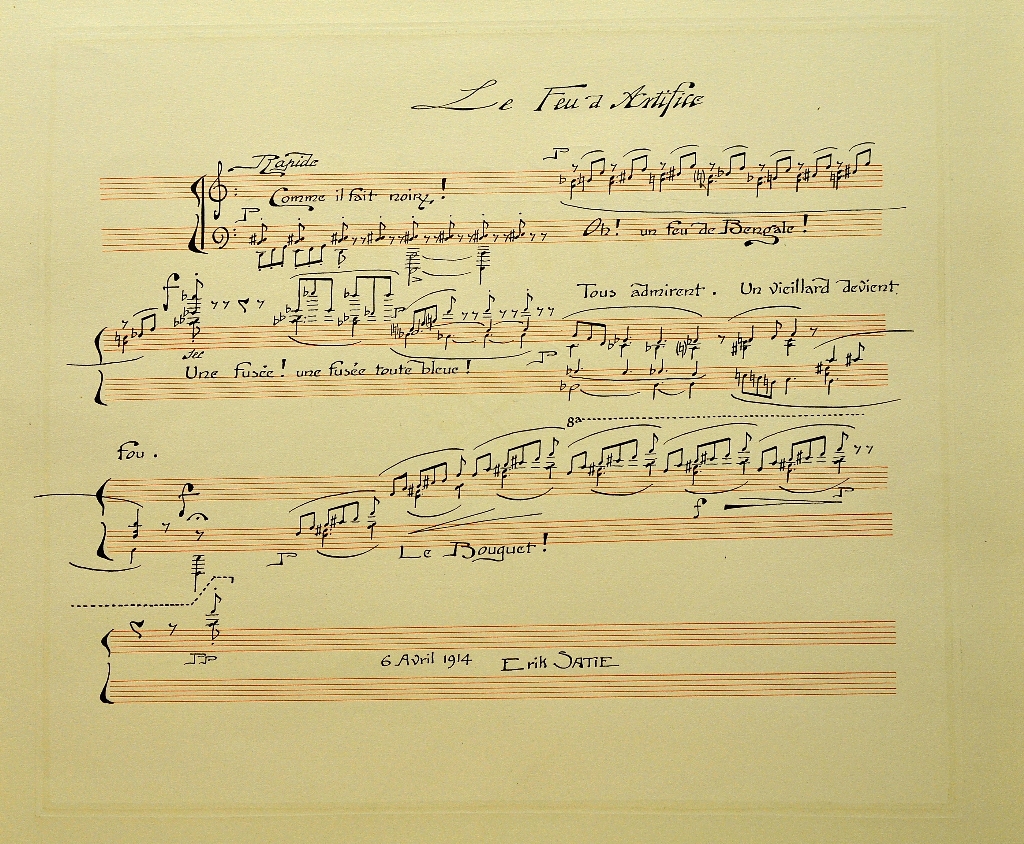 Le Feu d'Artifice
Rapide
Comme il fait noir!
P
P
Oh! un feu de Bengale!
f
sec
P
P
Tous admirent. Un vieillard devient
Une fusée! une fusée toute bleue!
fou.
8a
f
P
f
P
Le Bouquet!
PP
6 Avril 1914 Erik SATIE